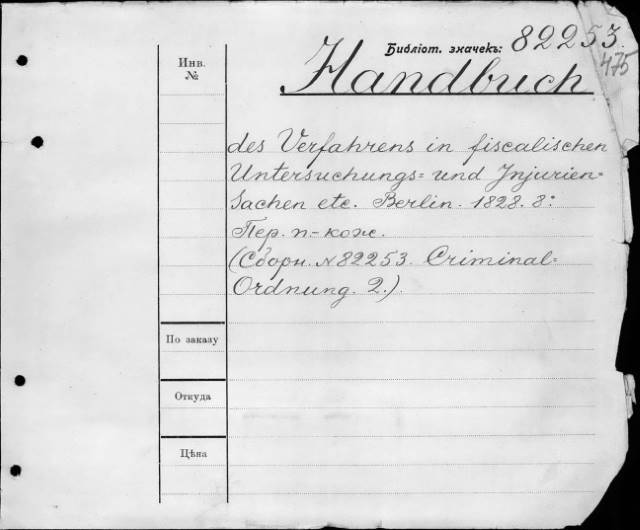 Библіот. значекъ: 82253.
475
Инв. №
Handbuch
des Verfahrens in fiscalischen
Untersuchungs= und Injurien=
Sachen etc. Berlin. 1828. 8:
Пер. п.-кож.
(Сборн. №82253. Criminal=
Ordnung. 2.).
По заказу
Откуда
Цѣна